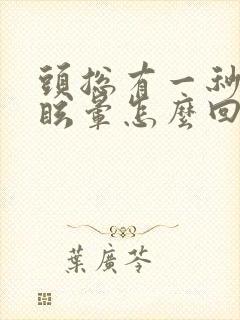 頭總有一秒
眩暈怎麼回
葉廣芩